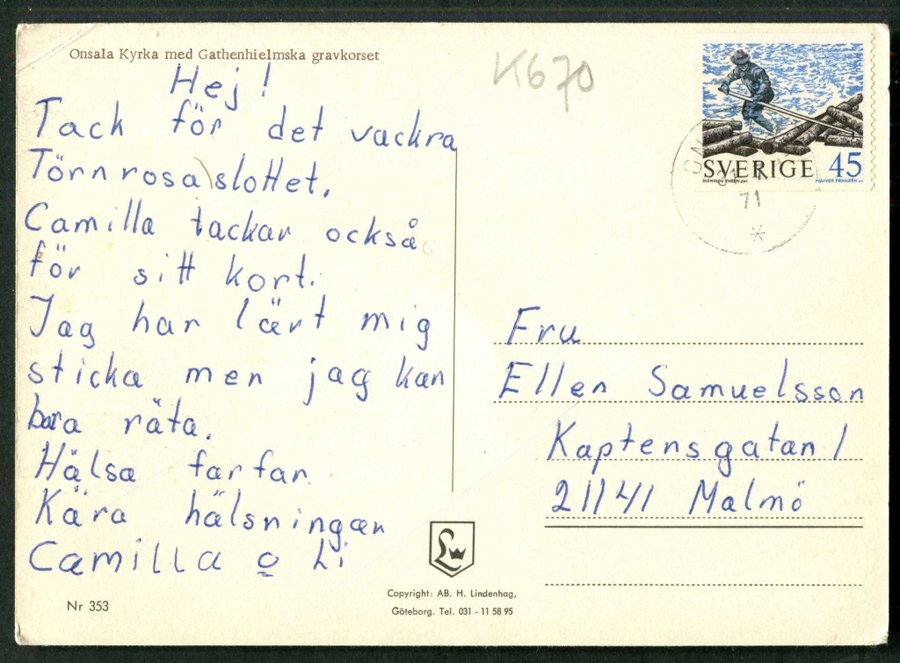 Onsala Kyrka med Gathenhielmska gravkorset
K670
Hej!
Tack för det vackra
Törnrosaslottet.
Camilla tackar också
för sitt kort.
Jag har lärt mig
sticka men jag kan
bara räta.
Hälsa farfar
Kära hälsningar
Camilla o Li
Nr 353
SVERIGE 45
71
Fru
Ellen Samuelsson
Kaptensgatan 1
21141 Malmö
L
Copyright: AB. H. Lindenhag,
Göteborg. Tel. 031 - 11 58 95